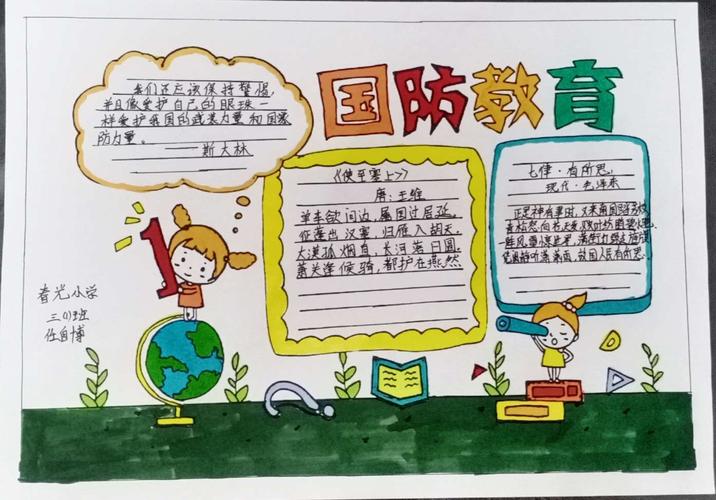 国防教育
我们还应该保持警惕,
并且像爱护自己的眼珠一
样爱护我国的武装力量和国家
防力量。
——斯大林
《使至塞上》
唐:王维
单车欲问边,属国过居延。
征蓬出汉塞,归雁入胡天。
大漠孤烟直,长河落日圆。
萧关逢候骑,都护在燕然
七律·有所思
现代·毛泽东
正是神都有事时,又来南国踏芳枝
青松怒向苍天发,败叶纷随碧水驰
阵风雷惊世界,满街红绿走旌旗
凭阑静听潇潇雨,故国人民有所思。
1
春光小学
三(1)班
任自博